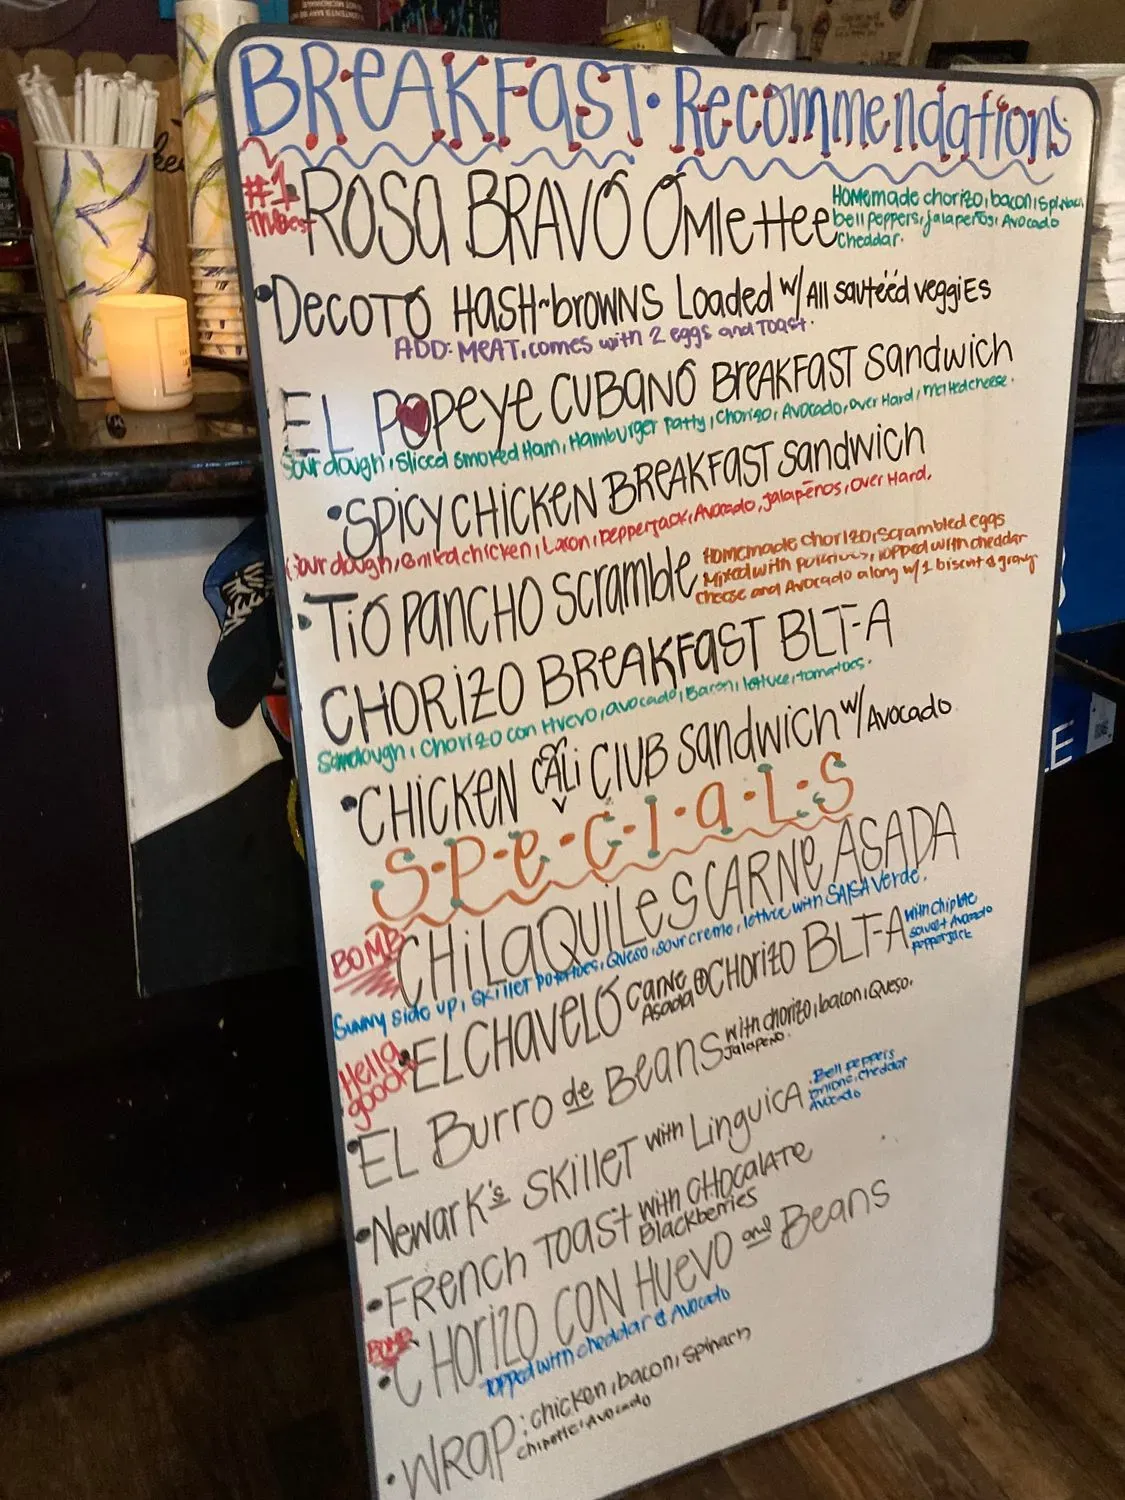 BREAKFAST • Recommendations
#1 ROSA BRAVO Omlettee
Homemade chorizo, bacon, spinach,
bell peppers, jalapeños, Avocado
Cheddar.
• DECOTO HASH-browns Loaded w/ All sautééd veggies
ADD: MEAT, comes with 2 eggs and Toast.
EL POPEYE CUBANO BREAKFAST sandwich
Sourdough, sliced smoked Ham, Hamburger patty, chorizo, Avocado, over Hard, melted cheese.
• SPICY CHICKEN BREAKFAST sandwich
Sourdough, Grilled chicken, Bacon, pepperjack, Avocado, jalapeños, over Hard.
• TIO PANCHO scramble
Homemade chorizo, scrambled eggs
Mixed with potatoes, topped with cheddar
cheese and Avocado along w/ 1 biscuit & gravy
CHORIZO BREAKFAST BLT-A
Sourdough, chorizo con Huevo, avocado, Bacon, lettuce, tomatoes.
• CHICKEN CALI CLUB sandwich w/ Avocado
S•P•e•C•I•a•L•S
BOMB CHILAQUILES CARNE ASADA
Sunny side up, skillet potatoes, Queso, sour creme, lettuce with SALSA Verde.
Hella good • EL CHAVELO carne Asada CHORIZO BLT-A
with chiplote
sauce + Avocado
pepperjack
• EL Burro de Beans with chorizo, bacon, Queso,
Jalapeño.
• Newark's SKILLET with LinguicA
Bell peppers
onions, cheddar
Avocado
• FRENCH TOAST with CHOcalATE
Blackberries
BOMB • CHORIZO CON HUEVO and Beans
Topped with cheddar & Avocado
• WRAP: chicken, bacon, spinach
chipotle, Avocado